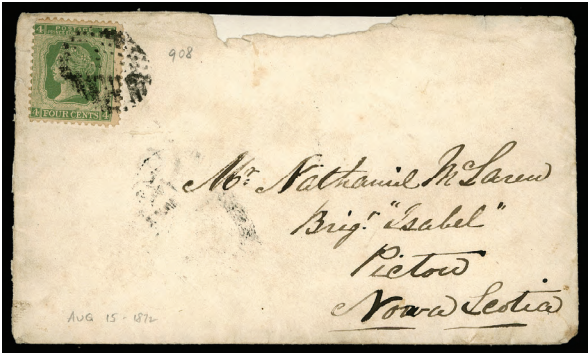 908
4 4
FOUR CENTS
Mr. Nathaniel McLaren
Brigt "Isabel"
Pictou
Nova Scotia
AUG 15 - 1872